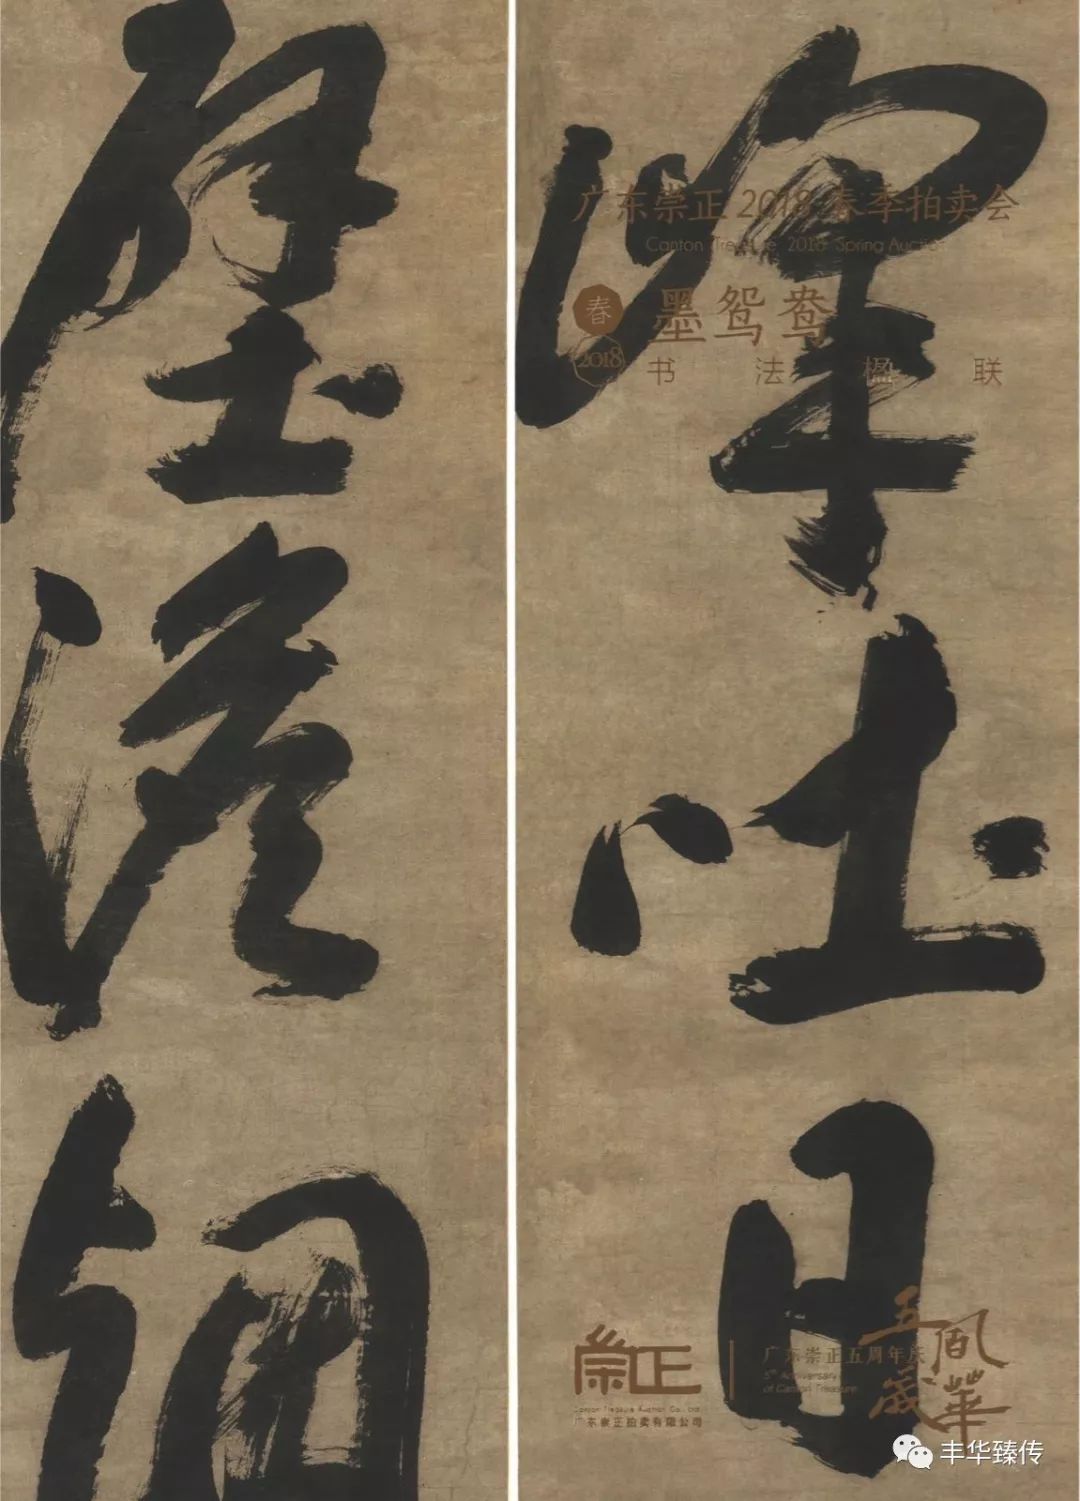 吐
日
壁
广东崇正 2018 春季拍卖会
Canton Treasure 2018 Spring Auction
春
2018
墨鸳鸯
书法楹联
崇正
Canton Treasure Auction Co., Ltd
广东崇正拍卖有限公司
广东崇正五周年庆
5th Anniversary
of Canton Treasure
五岁
风华
丰华臻传